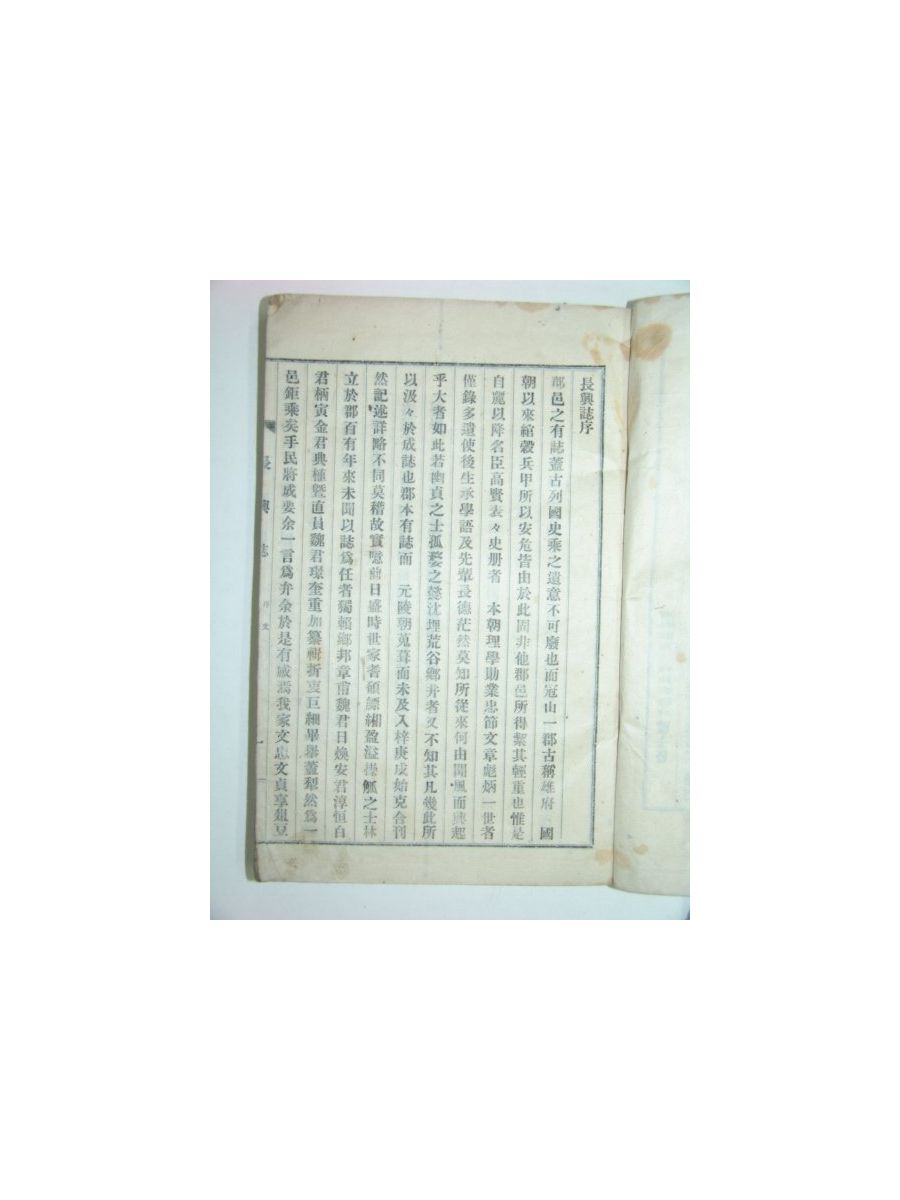 長興誌序
郡邑之有誌蓋古列國史乘之遺意不可廢也而冠山一郡古稱雄府 國
朝以來綰轂兵甲所以安危皆由於此固非他郡邑所得絜其輕重也惟是
自麗以降名臣高賢表々史册者 本朝理學勛業忠節文章彪炳一世者
僅錄多遺使後生承學語及先輩長德茫然莫知所從來何由聞風而興起
乎大者如此若幽貞之士孤嫠之懿沈埋荒谷鄉井者又不知其凡幾此所
以汲々於成誌也郡本有誌而 元陵朝蒐葺而未及入梓庚戌始克合刊
然記述詳略不同莫稽故實噫前日盛時世家者碩縹緗盈溢操觚之士林
立於郡百有年來未聞以誌爲任者獨賴鄉邦章甫魏君日煥安君淳恒白
君柄寅金君典極曁直員魏君璟奎重加纂輯折衷巨細畢擧蓋犁然爲一
邑鉅乘矣手民將成要余一言爲弁余於是有感焉我家文忠文貞享俎豆
長興誌 序文 一